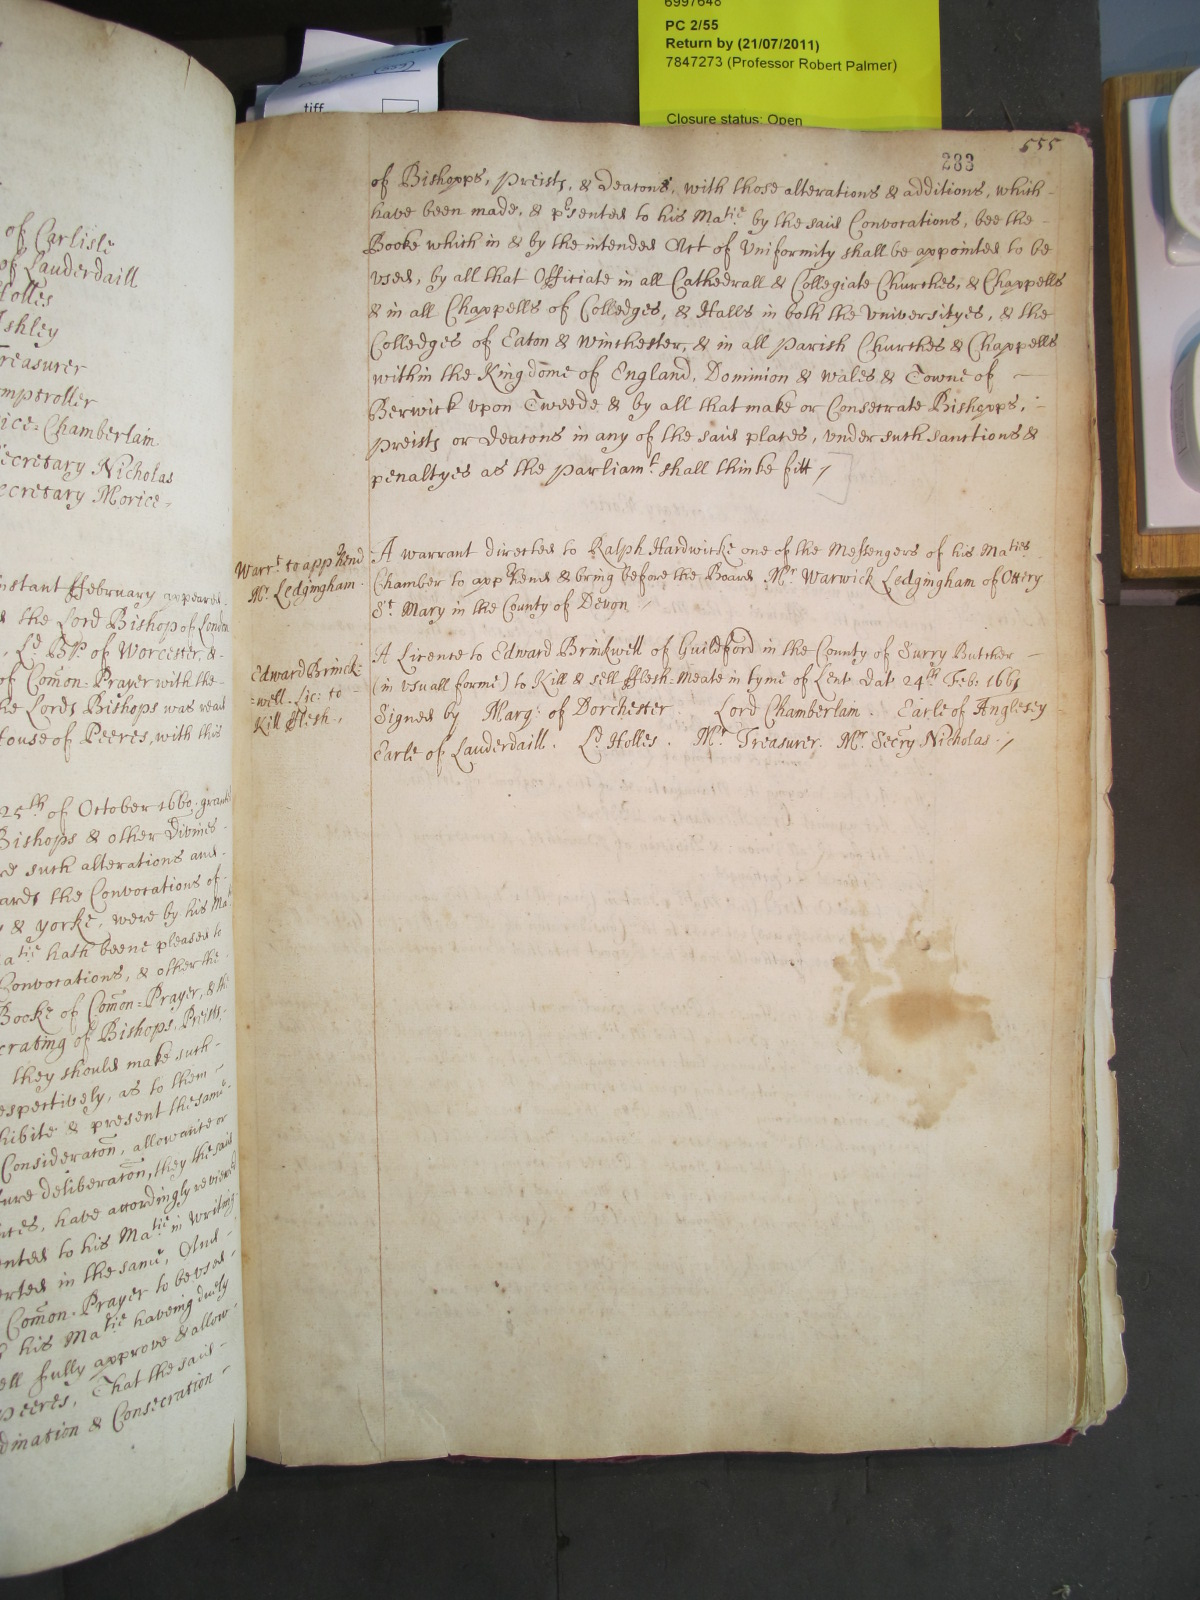 6997648
PC 2/55
Return by (21/07/2011)
7847273 (Professor Robert Palmer)
Closure status: Open
tiff
555
283
of Carlisle
of Lauderdaill
Holles
Ashley
Treasurer
Comptroller
Vice=Chamberlain
Secretary Nicholas
Secretary Morice
instant ffebruary appeared
the Lord Bishop of London
Ld. Bp. of Worcester, &
of Com̄on=Prayer with the
the Lords Bishops was read
House of Peeres, with this
25th of October 1660. grant
Bishops & other Divines
such alterations and
the Convocations of
& Yorke, were by his Ma
Matie hath beene pleased to
Convocations, & other the
Booke of Com̄on=Prayer, & the
of Bishops, Preists,
they should make such
respectively, as to them
exhibite & present the same
Consideratōn, allowance or
deliberatōn, they the said
have accordingly reviewed
to his Matie in writing
in the same, And
Com̄on=Prayer to be used
his Matie haveing duely
fully approve & allow
Peeres, That the said
& Consecration
of Bishopps, Preists, & Deacons, with those alterations & additions, which
have been made, & p'sented to his Matie by the said Convocations, bee the
Booke which in & by the intended Act of Uniformity shall be appointed to be
vsed, by all that Officiate in all Cathedrall & Collegiate Churches, & Chappells
& in all Chappells of Colledges, & Halls in both the Universityes, & the
Colledges of Eaton & Winchester, & in all Parish Churches & Chappells
within the Kingdome of England, Dominion & Wales & Towne of
Berwick vpon Tweede & by all that make or Consecrate Bishopps,
Preists or Deacons in any of the said places, vnder such sanctions &
penaltyes as the Parliamt. shall thinke fitt
Warrt. to app'hend
Mr. Ledgingham
A warrant directed to Ralph Hardwicke one of the Messengers of his Maties
Chamber to app'hend & bring before the Board Mr. Warwick Ledgingham of Ottery
St. Mary in the County of Devon
Edward Brinck=
=well. Lic: to
Kill fflesh
A License to Edward Brinkwell of Guildford in the County of Surry Butcher
(in vsuall forme) to Kill & sell fflesh=Meate in tyme of Lent. Dat 24th Feb. 1661
Signed by Marq: of Dorchester. Lord Chamberlain. Earle of Anglesey
Earle of Lauderdaill. Ld. Holles. Mr. Treasurer. Mr. Secry Nicholas